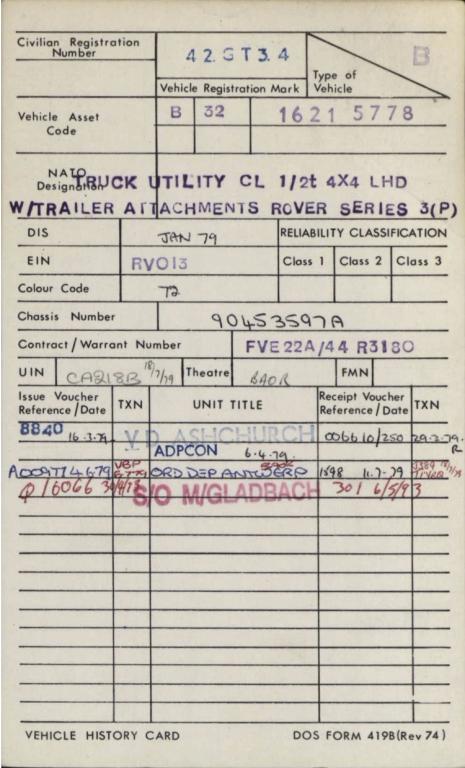 Civilian Registration Number 42.GT3.4 Type of Vehicle B
Vehicle Registration Mark
Vehicle Asset Code B 32 1621 5778
NATO Designation TRUCK UTILITY CL 1/2t 4X4 LHD
W/TRAILER ATTACHMENTS ROVER SERIES 3(P)
DIS JAN 79 RELIABILITY CLASSIFICATION
EIN RV013 Class 1 Class 2 Class 3
Colour Code 72
Chassis Number 90453597A
Contract/Warrant Number FVE22A/44 R3180
UIN CA218B 18/7/79 Theatre BAOR FMN
Issue Voucher Reference/Date TXN UNIT TITLE Receipt Voucher Reference/Date TXN
8840 16.3.79. V.D. ASHCHURCH 0066 10/250 29.3.79. R
ADPCON 6.4.79.
A009774679 VBP ORD DEP ANTWERP 1898 11.7.79
Q16066 30/4/93 S/O M/GLADBACH 301 6/5/93
VEHICLE HISTORY CARD DOS FORM 419B(Rev 74)